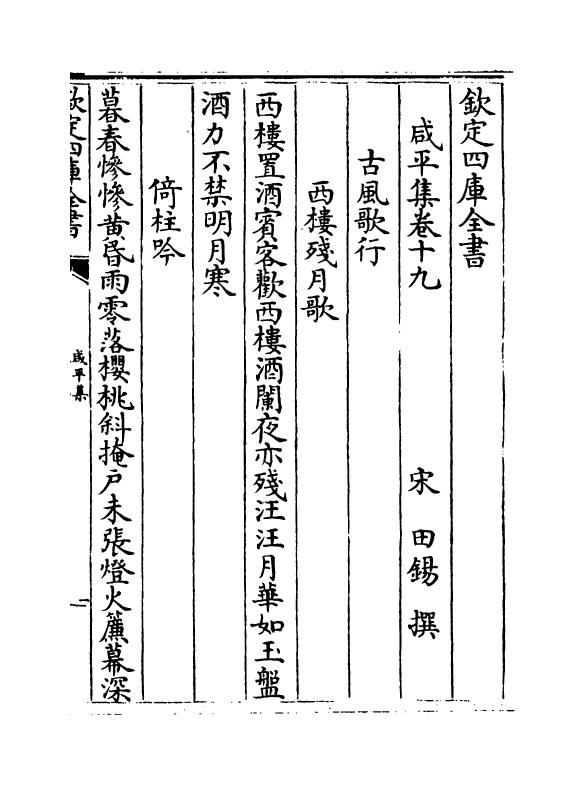 欽定四庫全書
咸平集卷十九 宋 田錫 撰
古風歌行
西樓殘月歌
西樓置酒賓客歡西樓酒闌夜亦殘汪汪月華如玉盤
酒力不禁明月寒
倚柱吟
暮春慘慘黄昏雨零落櫻桃斜掩戶未張燈火簾幕深
欽定四庫全書
咸平集
一